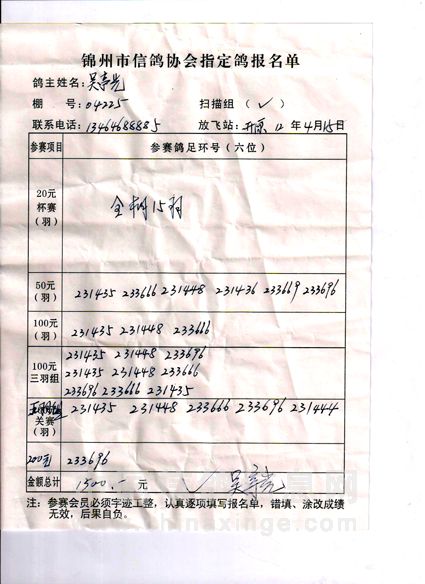 锦州市信鸽协会指定鸽报名单
鸽主姓名：吴幸光
棚 号：04225 扫描组（✓）
联系电话：13464688885 放飞站：开原 12年4月15日
参赛项目 参赛鸽足环号（六位）
20元
杯赛
（羽）
全棚15羽
50元
（羽）
231435 233666 231448 231436 233669 233696
100元
（羽）
231435 231448 233666
100元
三羽组
231435 231448 233696
231435 231448 233666
233696 233666 231435
关赛
（羽）
231435 231448 233666 233696 231444
200元 233696
金额总计 1500.- 元 ✓ 吴幸光
注：参赛会员必须字迹工整，认真逐项填写报名单，错填、涂改成绩
无效，后果自负。
www.chinaxinge.com